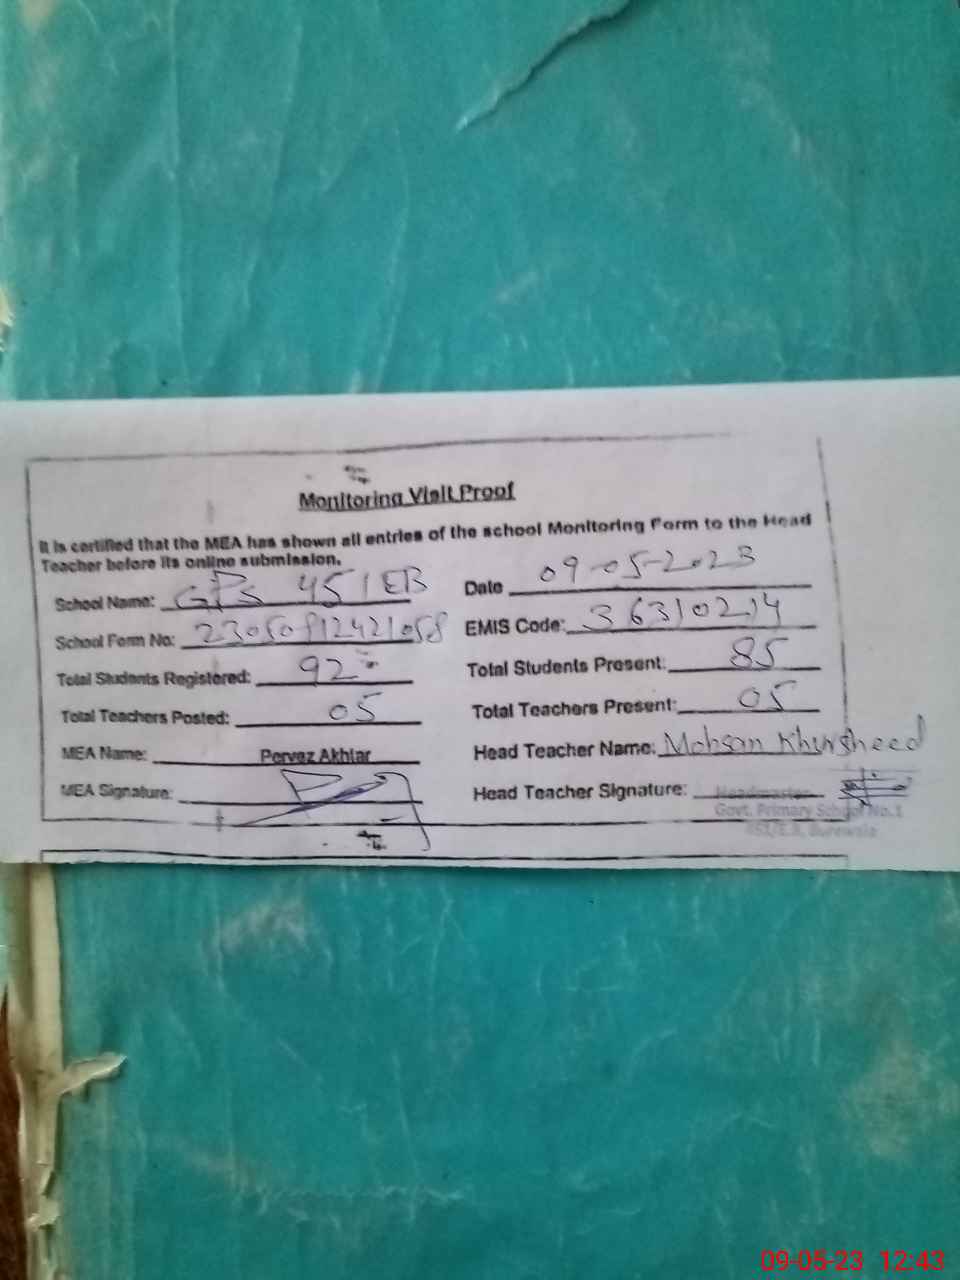 Monitoring Visit Proof
It is certified that the MEA has shown all entries of the school Monitoring Form to the Head
Teacher before its online submission.
School Name: GPS 451 EB Date 09-05-2023
School Form No: EMIS Code: 36310214
Total Students Registered: 92 Total Students Present: 85
Total Teachers Posted: 05 Total Teachers Present: 05
MEA Name: Pervez Akhtar Head Teacher Name: Mohsan Khursheed
MEA Signature: Head Teacher Signature:
Headmaster
Govt. Primary School No.1
451/E.B, Burewala
09-05-23 12:43